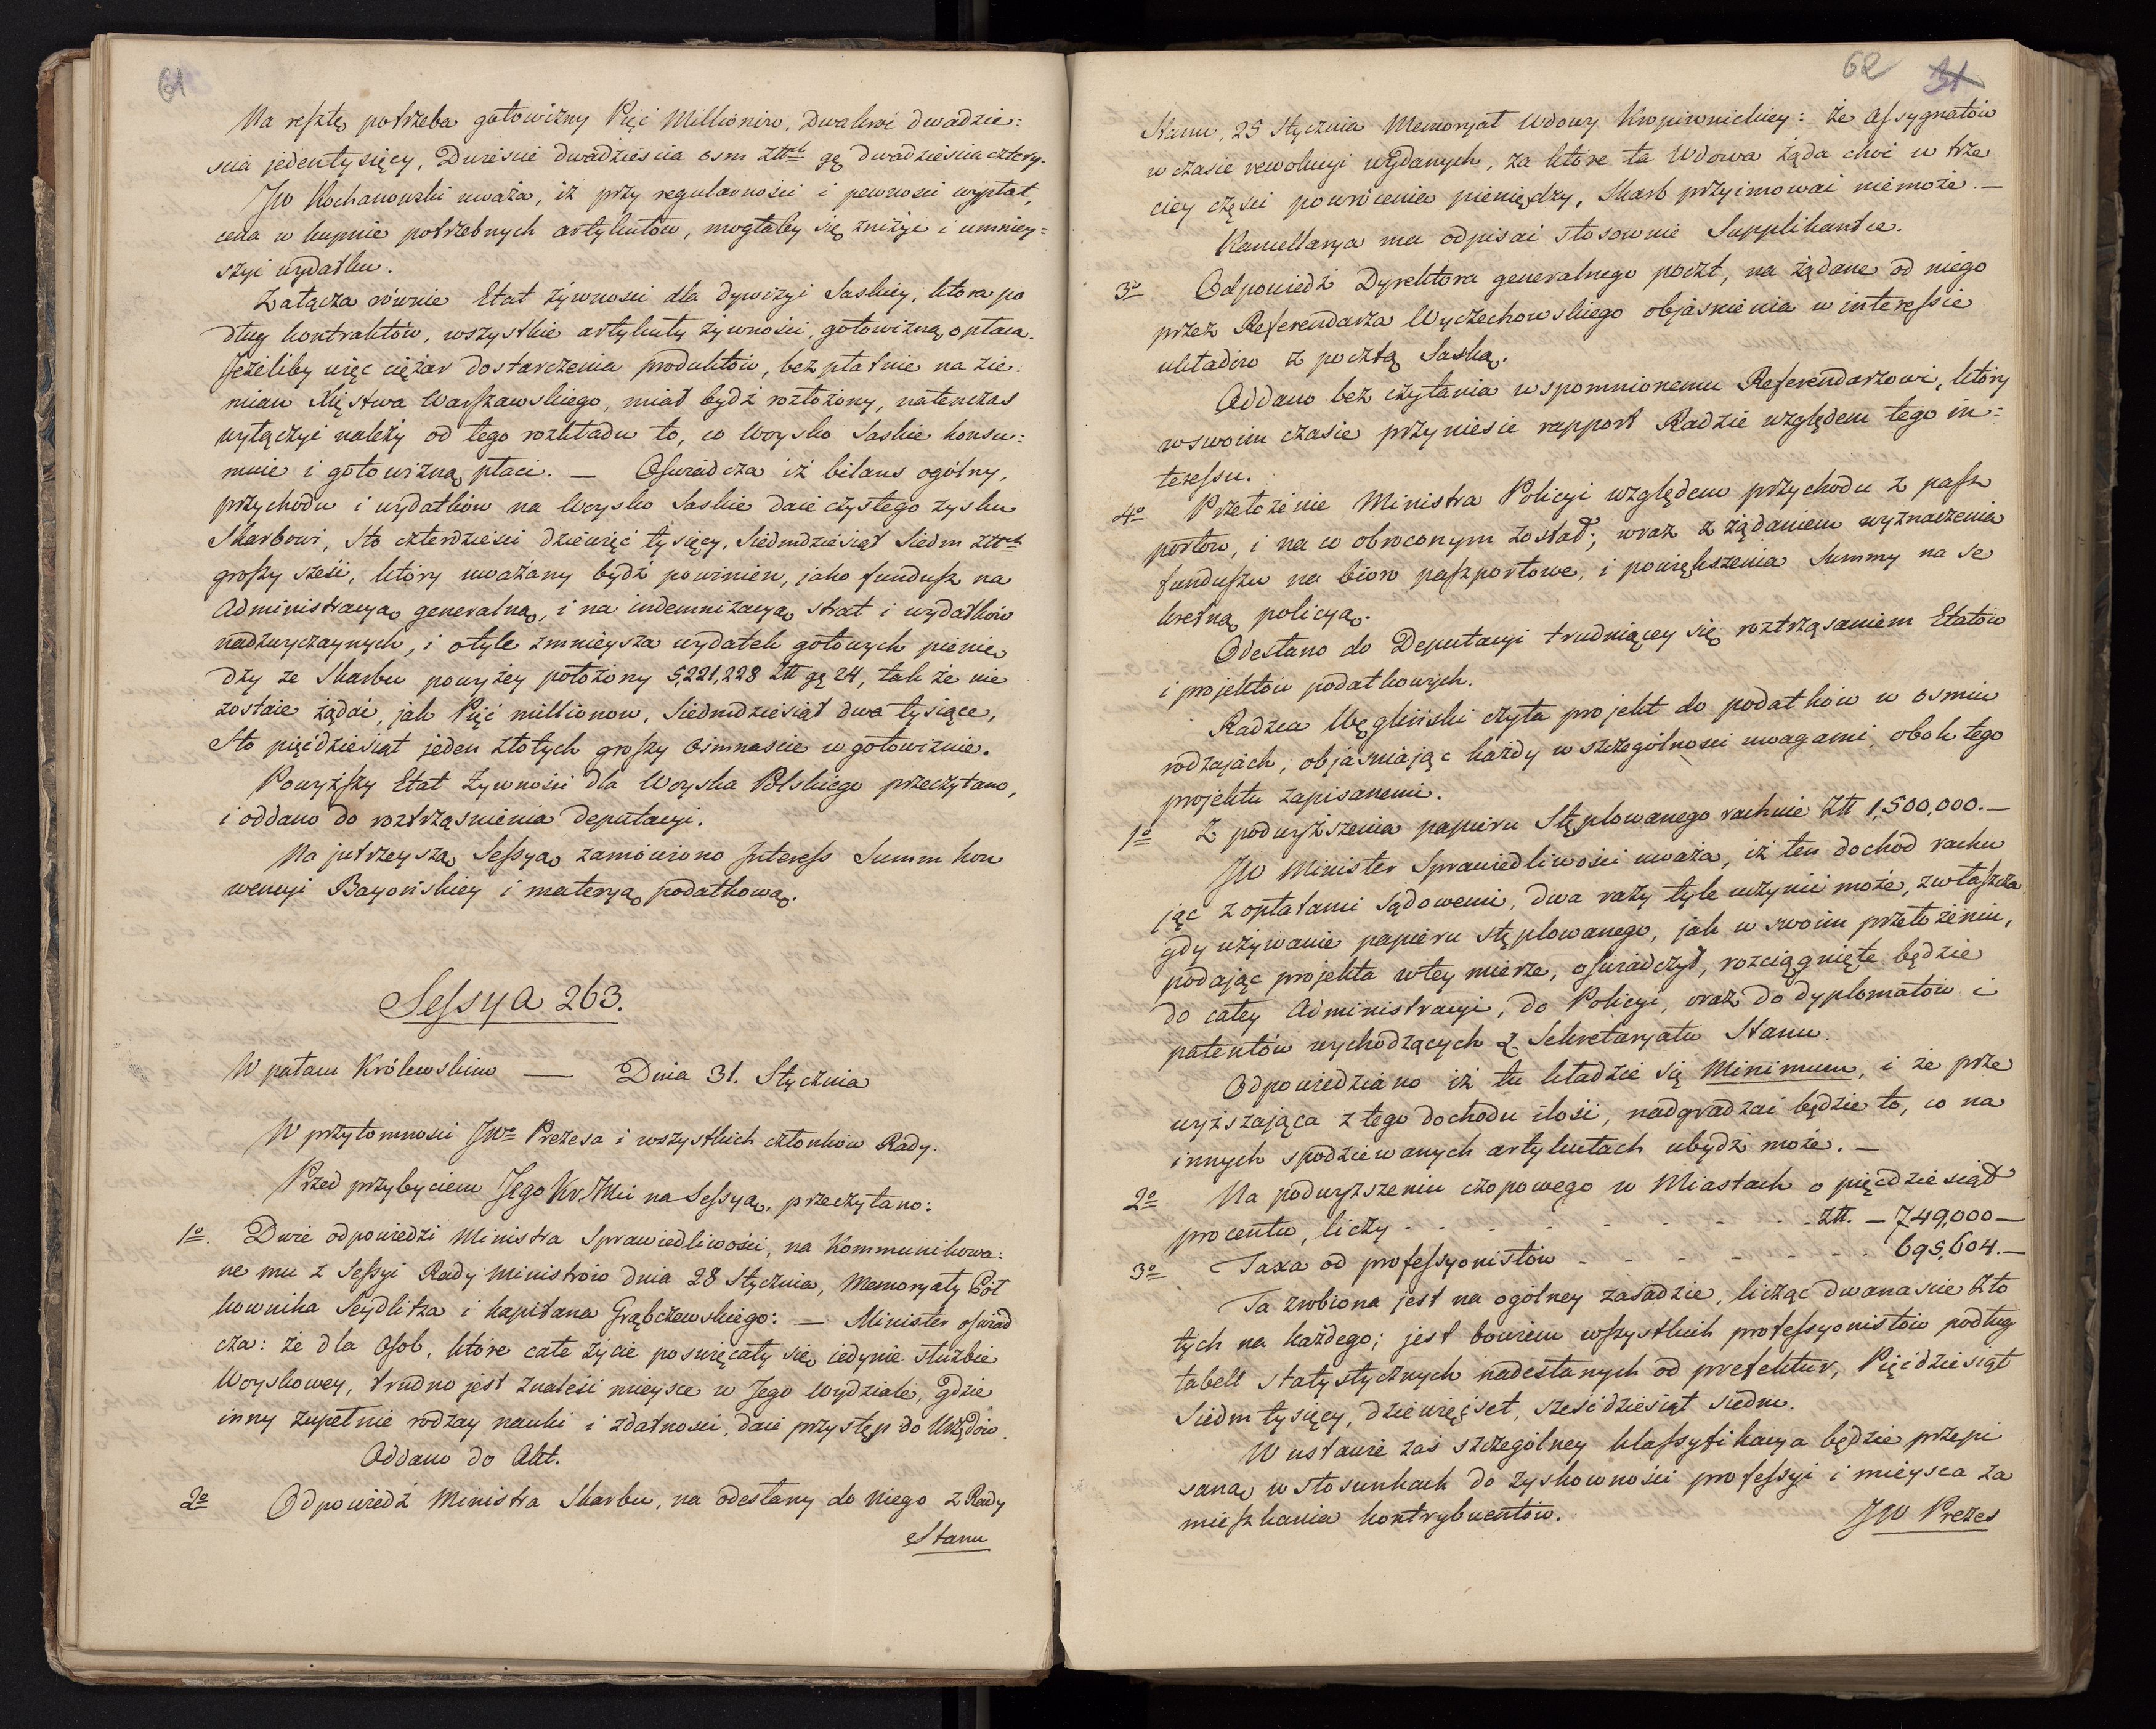 61
Na resztę potrzeba gotowizny Pięć Millionów, Dwakroć dwadzie=
scia jedentysięcy, Dwieście dwadzieścia osm Złłch gę dwadzieścia cztery.
JW Kochanowski uważa, iż przy regularności i pewności wypłat,
cena w kupnie potrzebnych artykułów, mogłaby się zniżyć i umniey=
szyć wydatku.
Załącza równie Etat żywności dla dywizyi Saskiey, która po
dług kontraktów, wszystkie artykuły żywności, gotowizną opłaca.
Jeżeliby więc ciężar dostarczenia produktów, bezpłatnie na zie=
mian Xięstwa Warszawskiego, miał bydź rozłożony, natenczas
wyłączyć należy od tego rozkładu to, co Woysko Saskie konsu=
muie i gotowizną płaci. — Oświadcza iż bilans ogólny,
przychodu i wydatków na Woysko Saskie daie czystego zysku
Skarbowi, Sto czterdzieści dziewięć tysięcy, Siedmdziesiąt Siedm Złłch
groszy sześć, który uważany bydź powinien, jako fundusz na
Administracyą generalną, i na indemnizacyą strat i wydatków
nadzwyczaynych, i otyle zmnieysza wydatek gotowych pienię
dzy ze Skarbu powyżey położony 5,221,228 Złł gę 24, tak że nie
zostaie żądać, jak Pięć millionow, Siedmdziesiąt dwa tysiące,
Sto pięćdziesiąt jeden złotych groszy Ośmnaście w gotowiznie.
Powyższy Etat Żywności dla Woyska Polskiego przeczytano,
i oddano do roztrząśnienia Deputacyi.
Na jutrzeyszą Sessyą zamówiono Interess Summ kon
wencyi Bayońskiey i materyą podatkową.
Sessya 263.
W pałacu Królewskim — Dnia 31. Stycznia
W przytomności JWo Prezesa i wszystkich członków Rady.
Przed przybyciem Jego Kr. Mci na Sessyą, przeczytano:
1o. Dwie odpowiedzi Ministra Sprawiedliwości, na Kommunikowa=
ne mu z Sessyi Rady Ministrów dnia 28 Stycznia, Memoryały Poł
kownika Seydlitza i kapitana Grąbczewskiego: — Minister oświad
cza: że dla Osob, które całe życie poswięcały się iedynie służbie
Woyskowey, trudno jest znaleść mieysce w Jego Wydziale, gdzie
inny zupełnie rodzay nauki i zdatności, daie przystęp do Urzędów.
Oddano do Akt.
2o Odpowiedź Ministra Skarbu, na odesłany do niego z Rady
Stanu
62 31
Stanu, 25 Stycznia Memoryał Wdowy Kropiwnickiey: że Assygnatów
w czasie rewolucyi wydanych, za które ta Wdowa żąda choć w trze
ciey części powrócenia pieniędzy, Skarb przyimować niemoże. —
Kancellarya ma odpisać stosownie Supplikantce.
3o Odpowiedź Dyrektora generalnego poczt, na żądane od niego
przez Referendarza Wyczechowskiego objaśnienia w interessie
układów z pocztą Saską.
Oddano bez czytania wspomnionemu Referendarzowi, który
wswoim czasie przyniesie rapport Radzie względem tego in=
teressu.
4o Przełożenie Ministra Policyi względem przychodu z pasz
portów, i na co obroconym został; wraz z żądaniem wyznaczenia
funduszu na bióro paszportowe, i powiększenia Summy na se
kretną policyą.
Odesłano do Deputacyi trudniącey się roztrząsaniem Etatów
i projektów podatkowych.
Radzca Węgliński czyta projekt do podatków w osmiu
rodzajach, objaśniając każdy w szczególności uwagami, obok tego
projektu zapisanemi.
1o Z podwyższenia papieru Stęplowanego rachuie Złł 1,500,000. —
JW Minister Sprawiedliwości uważa, iż ten dochod rachu
jąc z opłatami Sądowemi, dwa razy tyle uczynić może, zwłaszcza
gdy używanie papieru stęplowanego, jak w swoim przełożeniu,
podając projekta wtey mierze, oświadczył, rozciągnięte będzie
do całey Administracyi, do Policyi, oraz do dyplomatów i
patentów wychodzących z Sekretaryatu Stanu.
Odpowiedziano iż tu kładzie się Minimum, i że prze
wyższająca z tego dochodu ilość, nadgradzać będzie to, co na
innych spodziewanych artykułach ubydź może. —
2o Na podwyższeniu czopowego w Miastach o pięćdziesiąt
procentu, liczy - - - - - - - - - Złł. — 749,000 —
3o Taxa od professyonistów - - - - - - - 695,604. —
Ta zrobiona jest na ogólney zasadzie, licząc dwanaście zło
tych na każdego; jest bowiem wszystkich professyonistów podług
tabell statystycznych nadesłanych od prefektur, Pięćdziesiąt
Siedm tysięcy, dziewięćset, sześćdziesiąt siedm.
W ustawie zaś szczególney klassyfikacya będzie przepi
saną w stosunkach do zyskowności professyi i mieysca za
mieszkania kontrybuentów.
JW Prezes